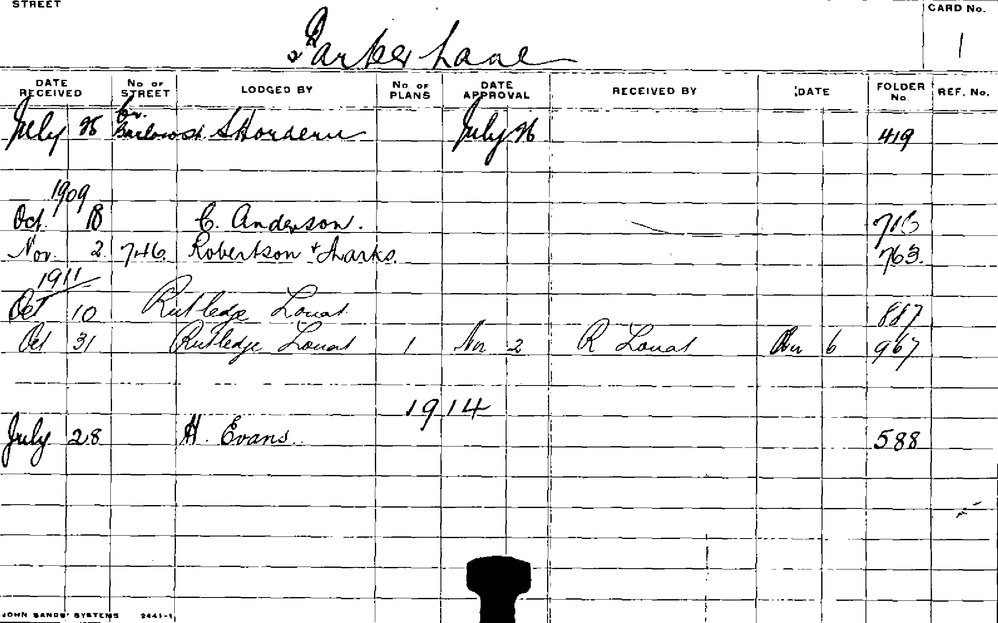 STREET
CARD No.
Parker Lane
1
DATE RECEIVED No OF STREET LODGED BY No OF PLANS DATE APPROVAL RECEIVED BY DATE FOLDER No. REF. No.
Cr.
July 25 Barlow St S Hordern July 26 419
1909
Oct. 18 C. Anderson.
Nov. 2 746. Robertson & Marks. 763.
1911
Oct 10 Rutledge Louat 887
Oct 31 Rutledge Louat 1 Nov 2 R Louat Nov 6 967
1914
July 28 H. Evans. 588
JOHN SANDS' SYSTEMS 2441-1